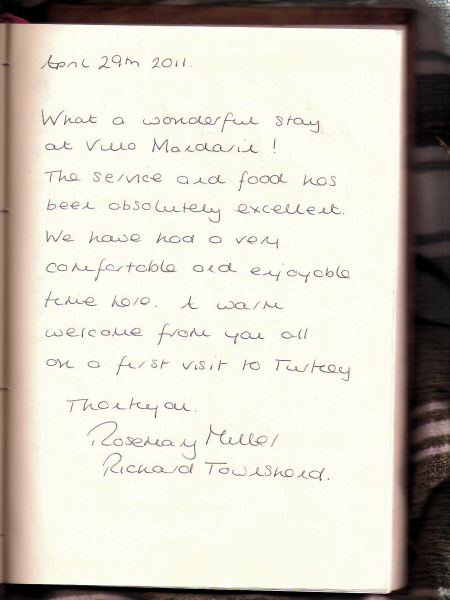 April 29th 2011.
What a wonderful stay
at Villa Mandarin!
The service and food has
been absolutely excellent.
We have had a very
comfortable and enjoyable
time here. A warm
welcome from you all
on a first visit to Turkey
Thankyou.
Rosemary Miller
Richard Townshend.